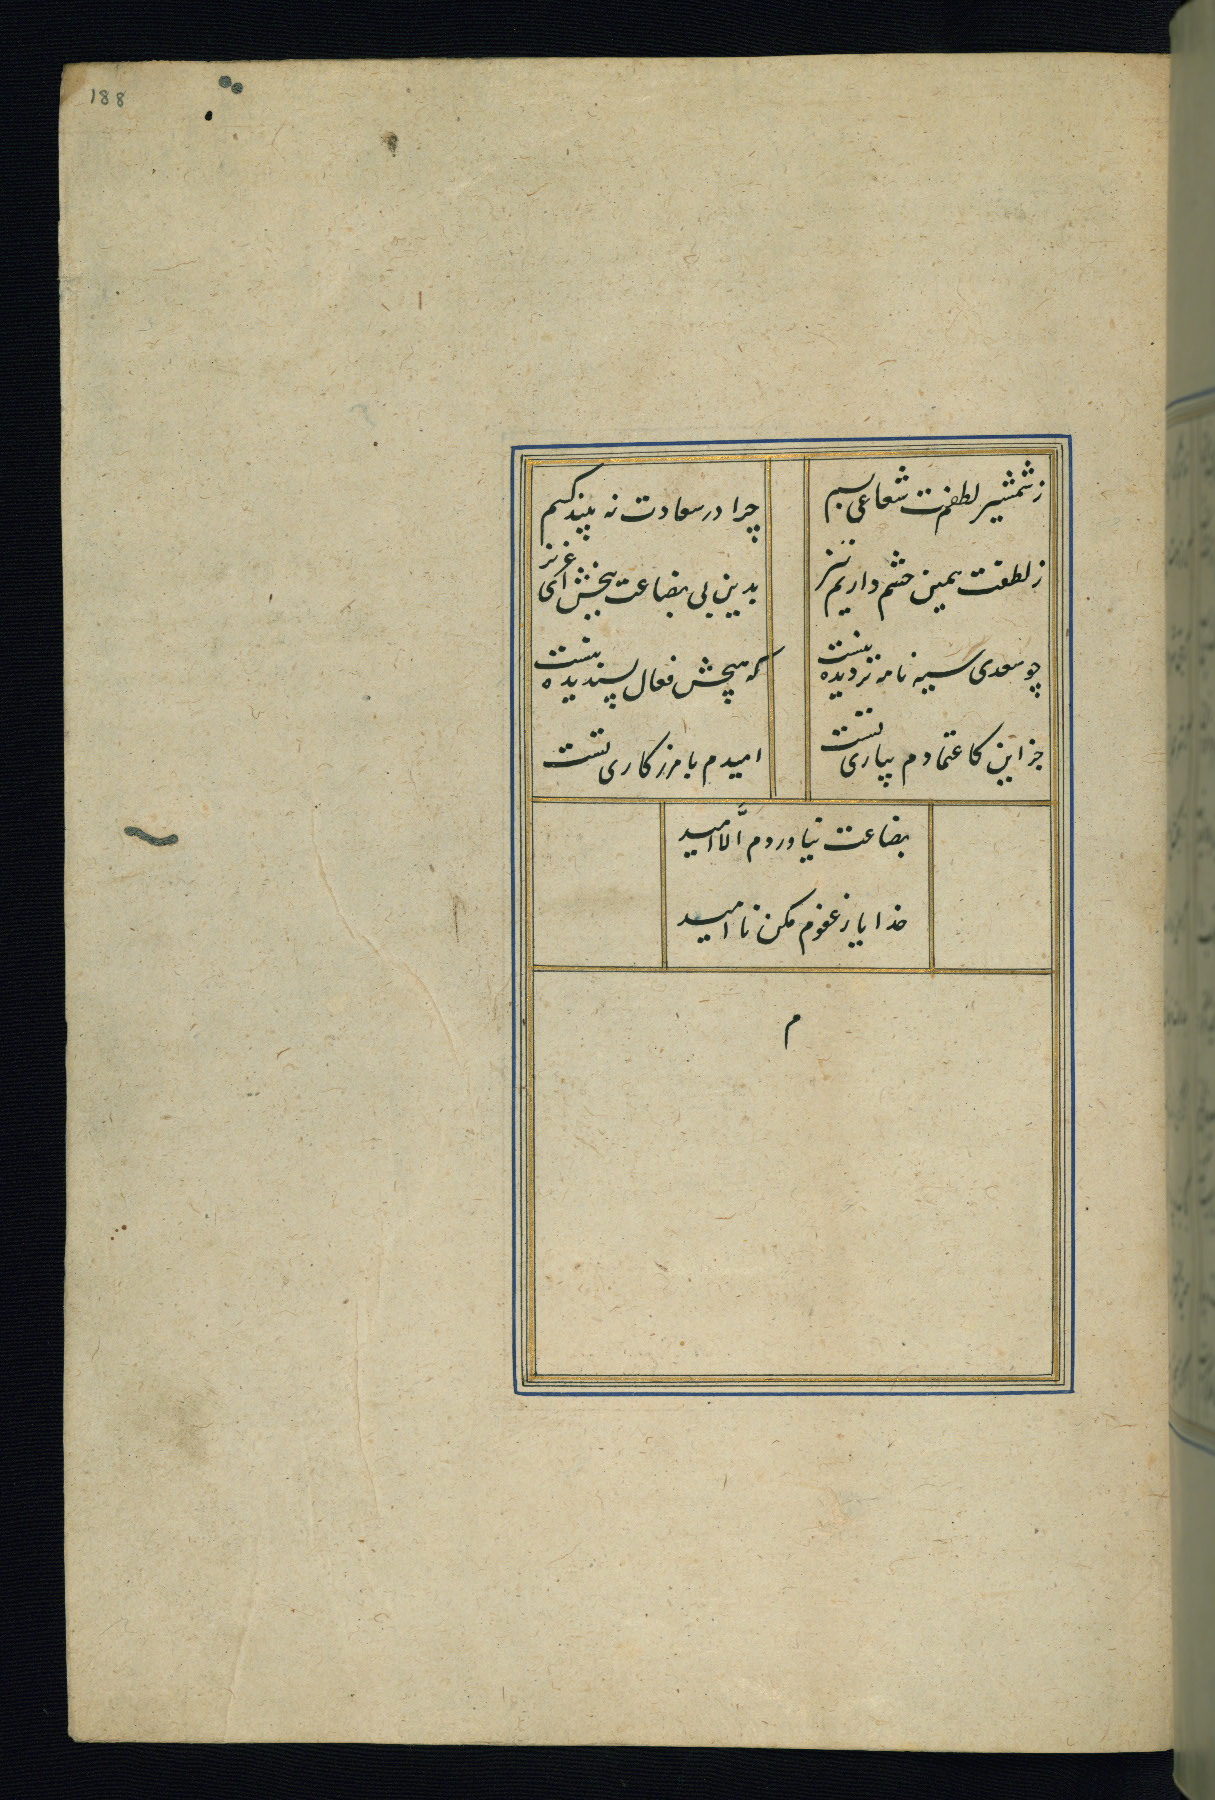 188
ز شمشیر لطفت شعاعی بسم
چرا در سعادت نه بیند کسم
ز لطفت همین چشم داریم نیز
بدین بی بضاعت ببخش ای عزیز
چو سعدی سیه نامه تر دیده نیست
که هیچش فعال پسندیده نیست
جز این کاعتمادم بیاری تست
امیدم بامرزکاری تست
بضاعت نیاوردم الّا امید
خدایا ز عفوم مکن ناامید
م